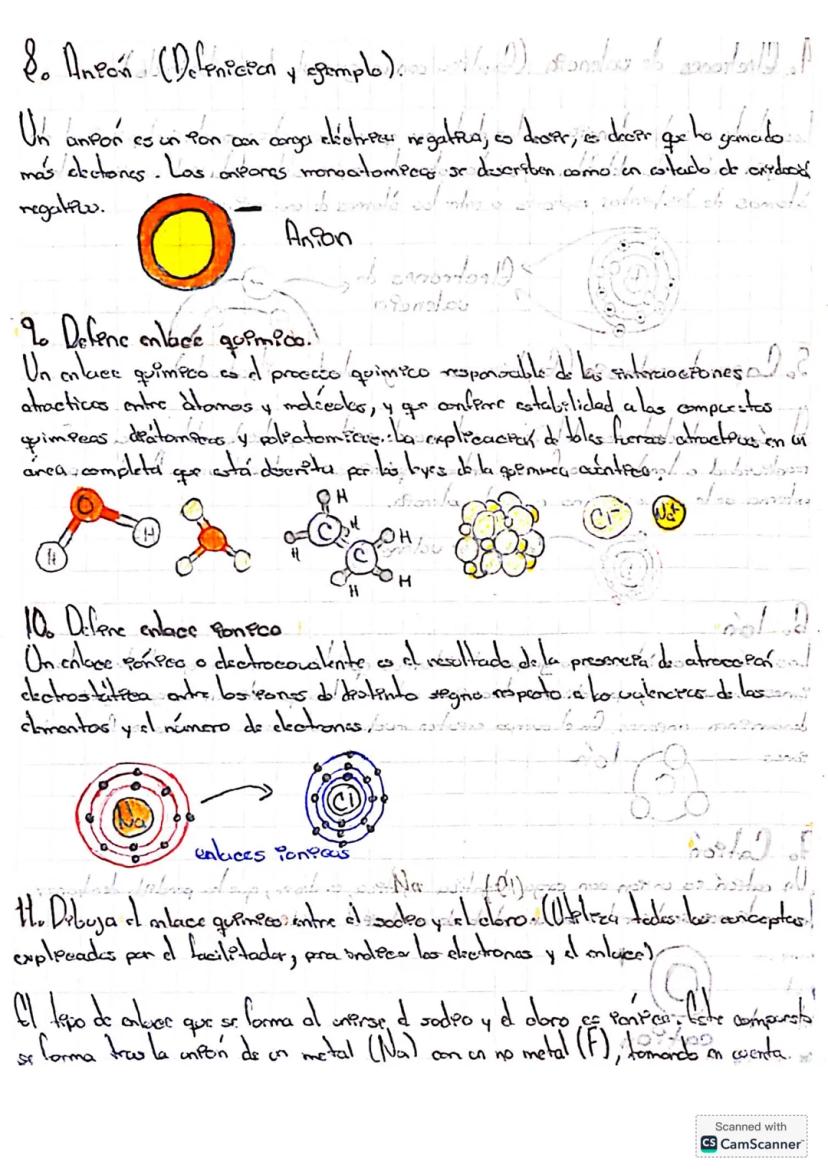 8. Anión (Definición y ejemplo).
Un anión es un ion con carga eléctrica negativa, es decir, es decir que ha ganado
más electones. Los aniones monoatomicos se describen como un estado de oxidación
negativo.
Anion
9. Define enlace químico.
Un enlace químico es el proceso químico responsable de las interacciones
atracticas entre átomos y moléculas, y que confiere estabilidad a los compuestos
químicos diátomicos y poliatomicos. La explicación de tales fuerzas atractivas en un
área completa que está descrita por las leyes de la química cuántica.
O H H
H H
C H H
C O H
H H
Cl- Na+
10. Define enlace ionico
Un enlace iónico o electrocovalente es el resultado de la presencia de atracción
electrostática entre los iones de distinto signo respecto a las valencias de los
elementos y el número de electrones.
Na Cl
enlaces ionicos
Na
11. Dibuja el enlace químico entre el sodio y el cloro. (Utiliza todos los conceptos
explicados por el facilitador, para indicar los electrones y el enlace)
El tipo de enlace que se forma al unirse el sodio y el cloro es iónico. Este compuesto
se forma tras la unión de un metal (Na) con un no metal (F), tomando en cuenta.
Scanned with
CS CamScanner